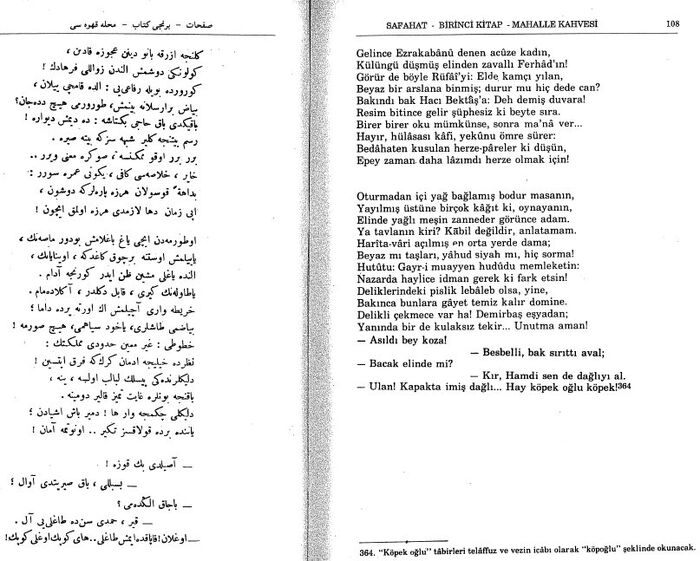 صفحات - برنجی كتاب - محله قهوه سی
كلنجه ازرقه بانو دینن عجوزه قادین ،
كولونكی دوشمش الندن زواللی فرهادك !
كورورده بویله رفاعی‌یی : الده قامچی ییلان ،
بیاض برارسلانه بینمش، طورورمی هیچ دده‌جان؟
باقیكدی باق حاجی بكتاشه : ده دیمش دیواره !
رسم بیتنجه كلیر شبهه سزكه بیته صیره .
بر بر اوقو ممكنسه ، صوكره معنی ویر ..
خایر ، خلاصه‌سی كافی ، یكونی عمره سورر :
بداهة قوسولان هرزه پاره‌لركه دوشون ،
اپی زمان دها لازمدی هرزه اولمق ایچون !
اوطورمه‌دن ایچی یاغ باغلامش بودور ماصه‌نك ،
یاییلمش اوستنه برچوق كاغدكه ، اوینایانك ،
النده یاغلی مشین ظن ایدر كورنجه آدام .
یاطاوله‌نك كیری ، قابل دكلدر ، آكلاده‌مام .
خریطه واری آچیلمش اك اورته یرده داما ؛
بیاضمی طاشلری، یاخود سیاهمی، هیچ صورمه !
خطوطی : غیر معین حدودی مملكتك :
نظرده خیلیجه ادمان كرك كه فرق ایتسین !
دلیكلرنده‌كی پیسلك لبالب اولسه ، ینه ،
باقنجه بونلره غایت تمیز قالیر دومینه .
دلیكلی چكمجه وار ها ! دمیر باش اشیادن ؛
یاننده برده قولاقسز تكیر .. اونوتمه آمان !
— آصیلدی بك قوزه !
— بسبللی ، باق صیریتدی آوال ؛
— باجاق الكده‌می ؟
— قیر ، حمدی سن ده طاغلی‌یی آل .
— اوغلان! قاپاقده ایمش طاغلی.. های كوپك اوغلی كوپك!
SAFAHAT - BİRİNCİ KİTAP - MAHALLE KAHVESİ 108
Gelince Ezrakabânû denen acûze kadın,
Külüngü düşmüş elinden zavallı Ferhâd'ın!
Görür de böyle Rüfâî'yi: Elde kamçı yılan,
Beyaz bir arslana binmiş; durur mu hiç dede can?
Bakındı bak Hacı Bektâş'a: Deh demiş duvara!
Resim bitince gelir şüphesiz ki beyte sıra.
Birer birer oku mümkünse, sonra ma'nâ ver...
Hayır, hülâsası kâfi, yekûnu ömre sürer:
Bedâhaten kusulan herze-pâreler ki düşün,
Epey zaman daha lâzımdı herze olmak için!
Oturmadan içi yağ bağlamış bodur masanın,
Yayılmış üstüne birçok kâğıt ki, oynayanın,
Elinde yağlı meşin zanneder görünce adam.
Ya tavlanın kiri? Kābil değildir, anlatamam.
Harîta-vâri açılmış en orta yerde dama;
Beyaz mı taşları, yâhud siyah mı, hiç sorma!
Hutûtu: Gayr-i muayyen hudûdu memleketin:
Nazarda haylice idman gerek ki fark etsin!
Deliklerindeki pislik lebâleb olsa, yine,
Bakınca bunlara gâyet temiz kalır domine.
Delikli çekmece var ha! Demirbaş eşyadan;
Yanında bir de kulaksız tekir... Unutma aman!
— Asıldı bey koza!
— Besbelli, bak sırıttı aval;
— Bacak elinde mi?
— Kır, Hamdi sen de dağlıyı al.
— Ulan! Kapakta imiş dağlı... Hay köpek oğlu köpek!364
364. "Köpek oğlu" tâbirleri telaffuz ve vezin icâbı olarak "köpoğlu" şeklinde okunacak.